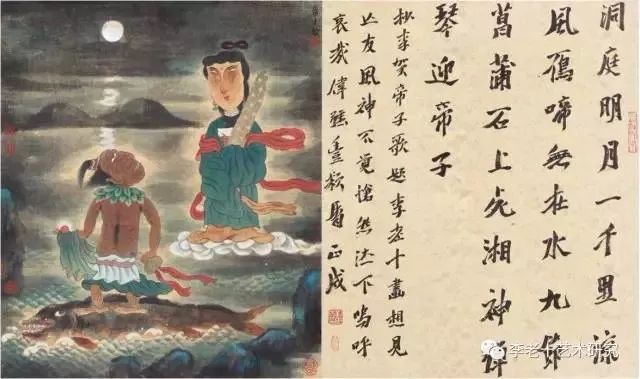 洞庭明月一千里凉
風鴈啼在水九節
菖蒲石上死湘神彈
琴迎帝子
李賀帝子歌題李老十畫想見
亡友風神不覺愴然泣下嗚呼
哀哉 正成
李老十艺术研究